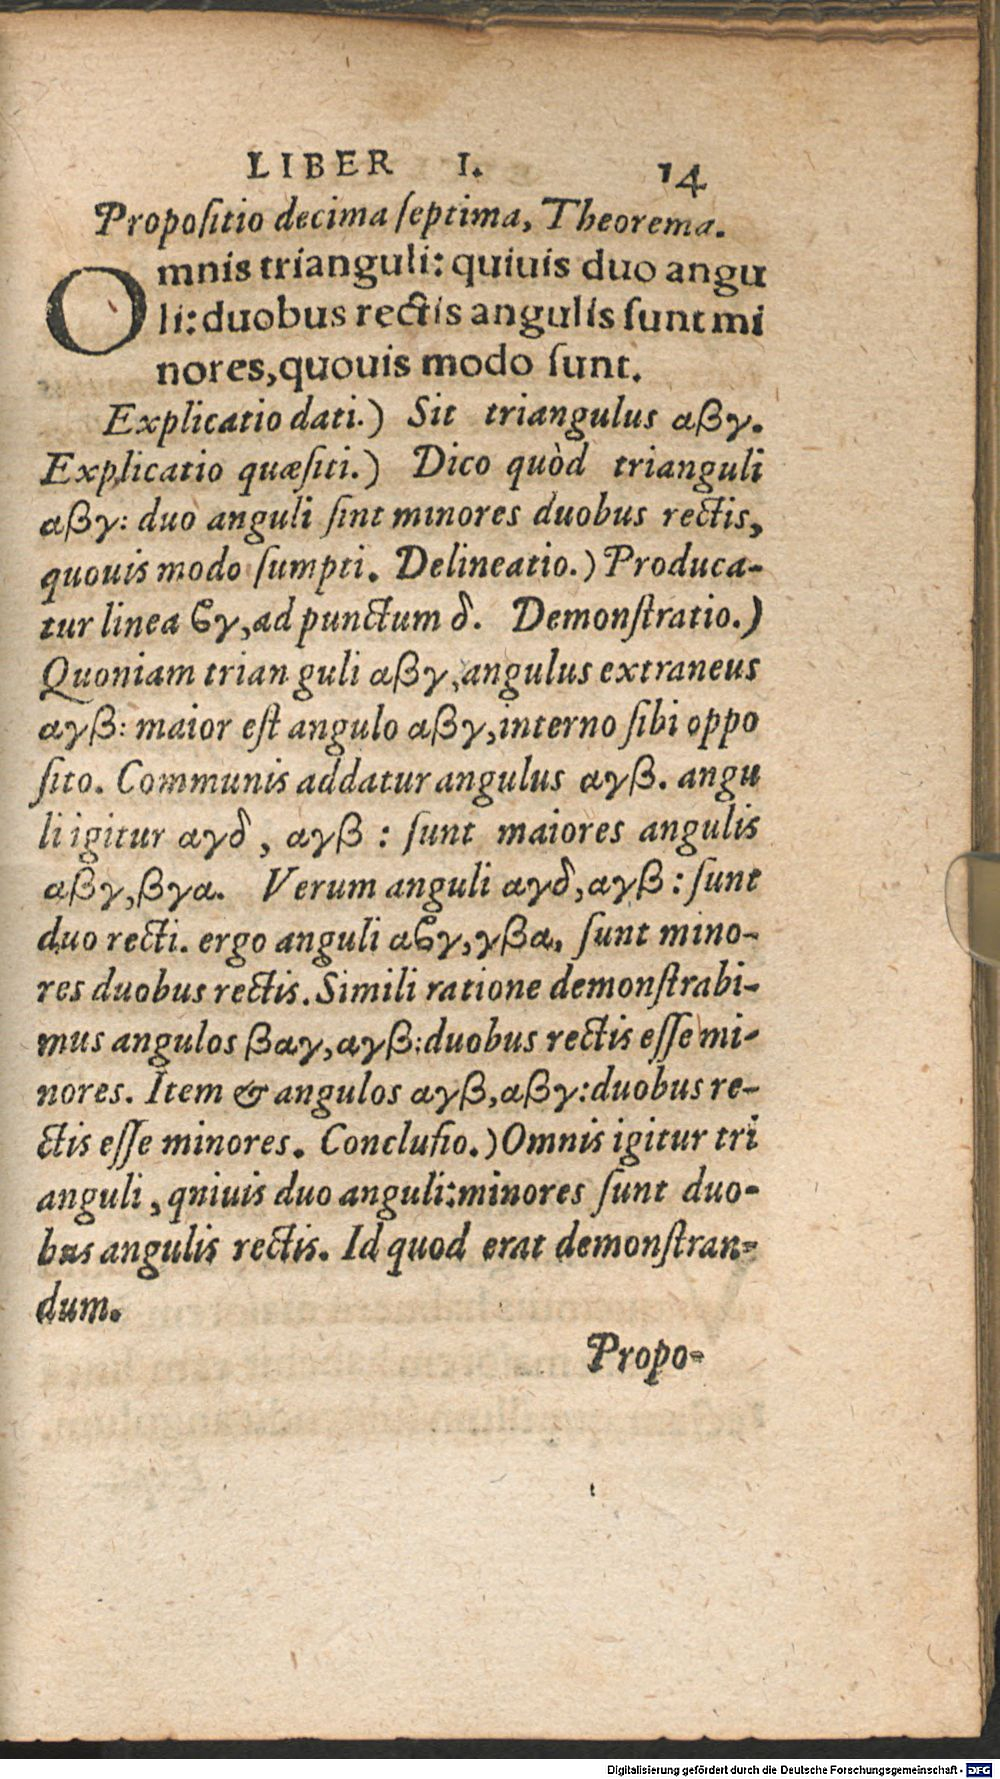 LIBER I. 14
Propoſitio decima ſeptima, Theorema.
Omnis trianguli: quiuis duo angu
li: duobus rectis angulis ſunt mi
nores, quouis modo ſunt.
Explicatio dati.) Sit triangulus αβγ.
Explicatio quæſiti.) Dico quòd trianguli
αβγ: duo anguli ſint minores duobus rectis,
quouis modo ſumpti. Delineatio.) Produca-
tur linea ϐγ, ad punctum δ. Demonſtratio.)
Quoniam trian guli αβγ, angulus extraneus
αγβ: maior eſt angulo αβγ, interno ſibi oppo
ſito. Communis addatur angulus αγβ. angu
li igitur αγδ, αγβ: ſunt maiores angulis
αβγ, βγα. Verum anguli αγδ, αγβ: ſunt
duo recti. ergo anguli αϐγ, γβα, ſunt mino-
res duobus rectis. Simili ratione demonſtrabi-
mus angulos βαγ, αγβ: duobus rectis eſſe mi-
nores. Item & angulos αγβ, αβγ: duobus re-
ctis eſſe minores. Concluſio.) Omnis igitur tri
anguli, qniuis duo anguli: minores ſunt duo-
bus angulis rectis. Id quod erat demonſtran-
dum.
Propo-
Digitalisierung gefördert durch die Deutsche Forschungsgemeinschaft - DFG